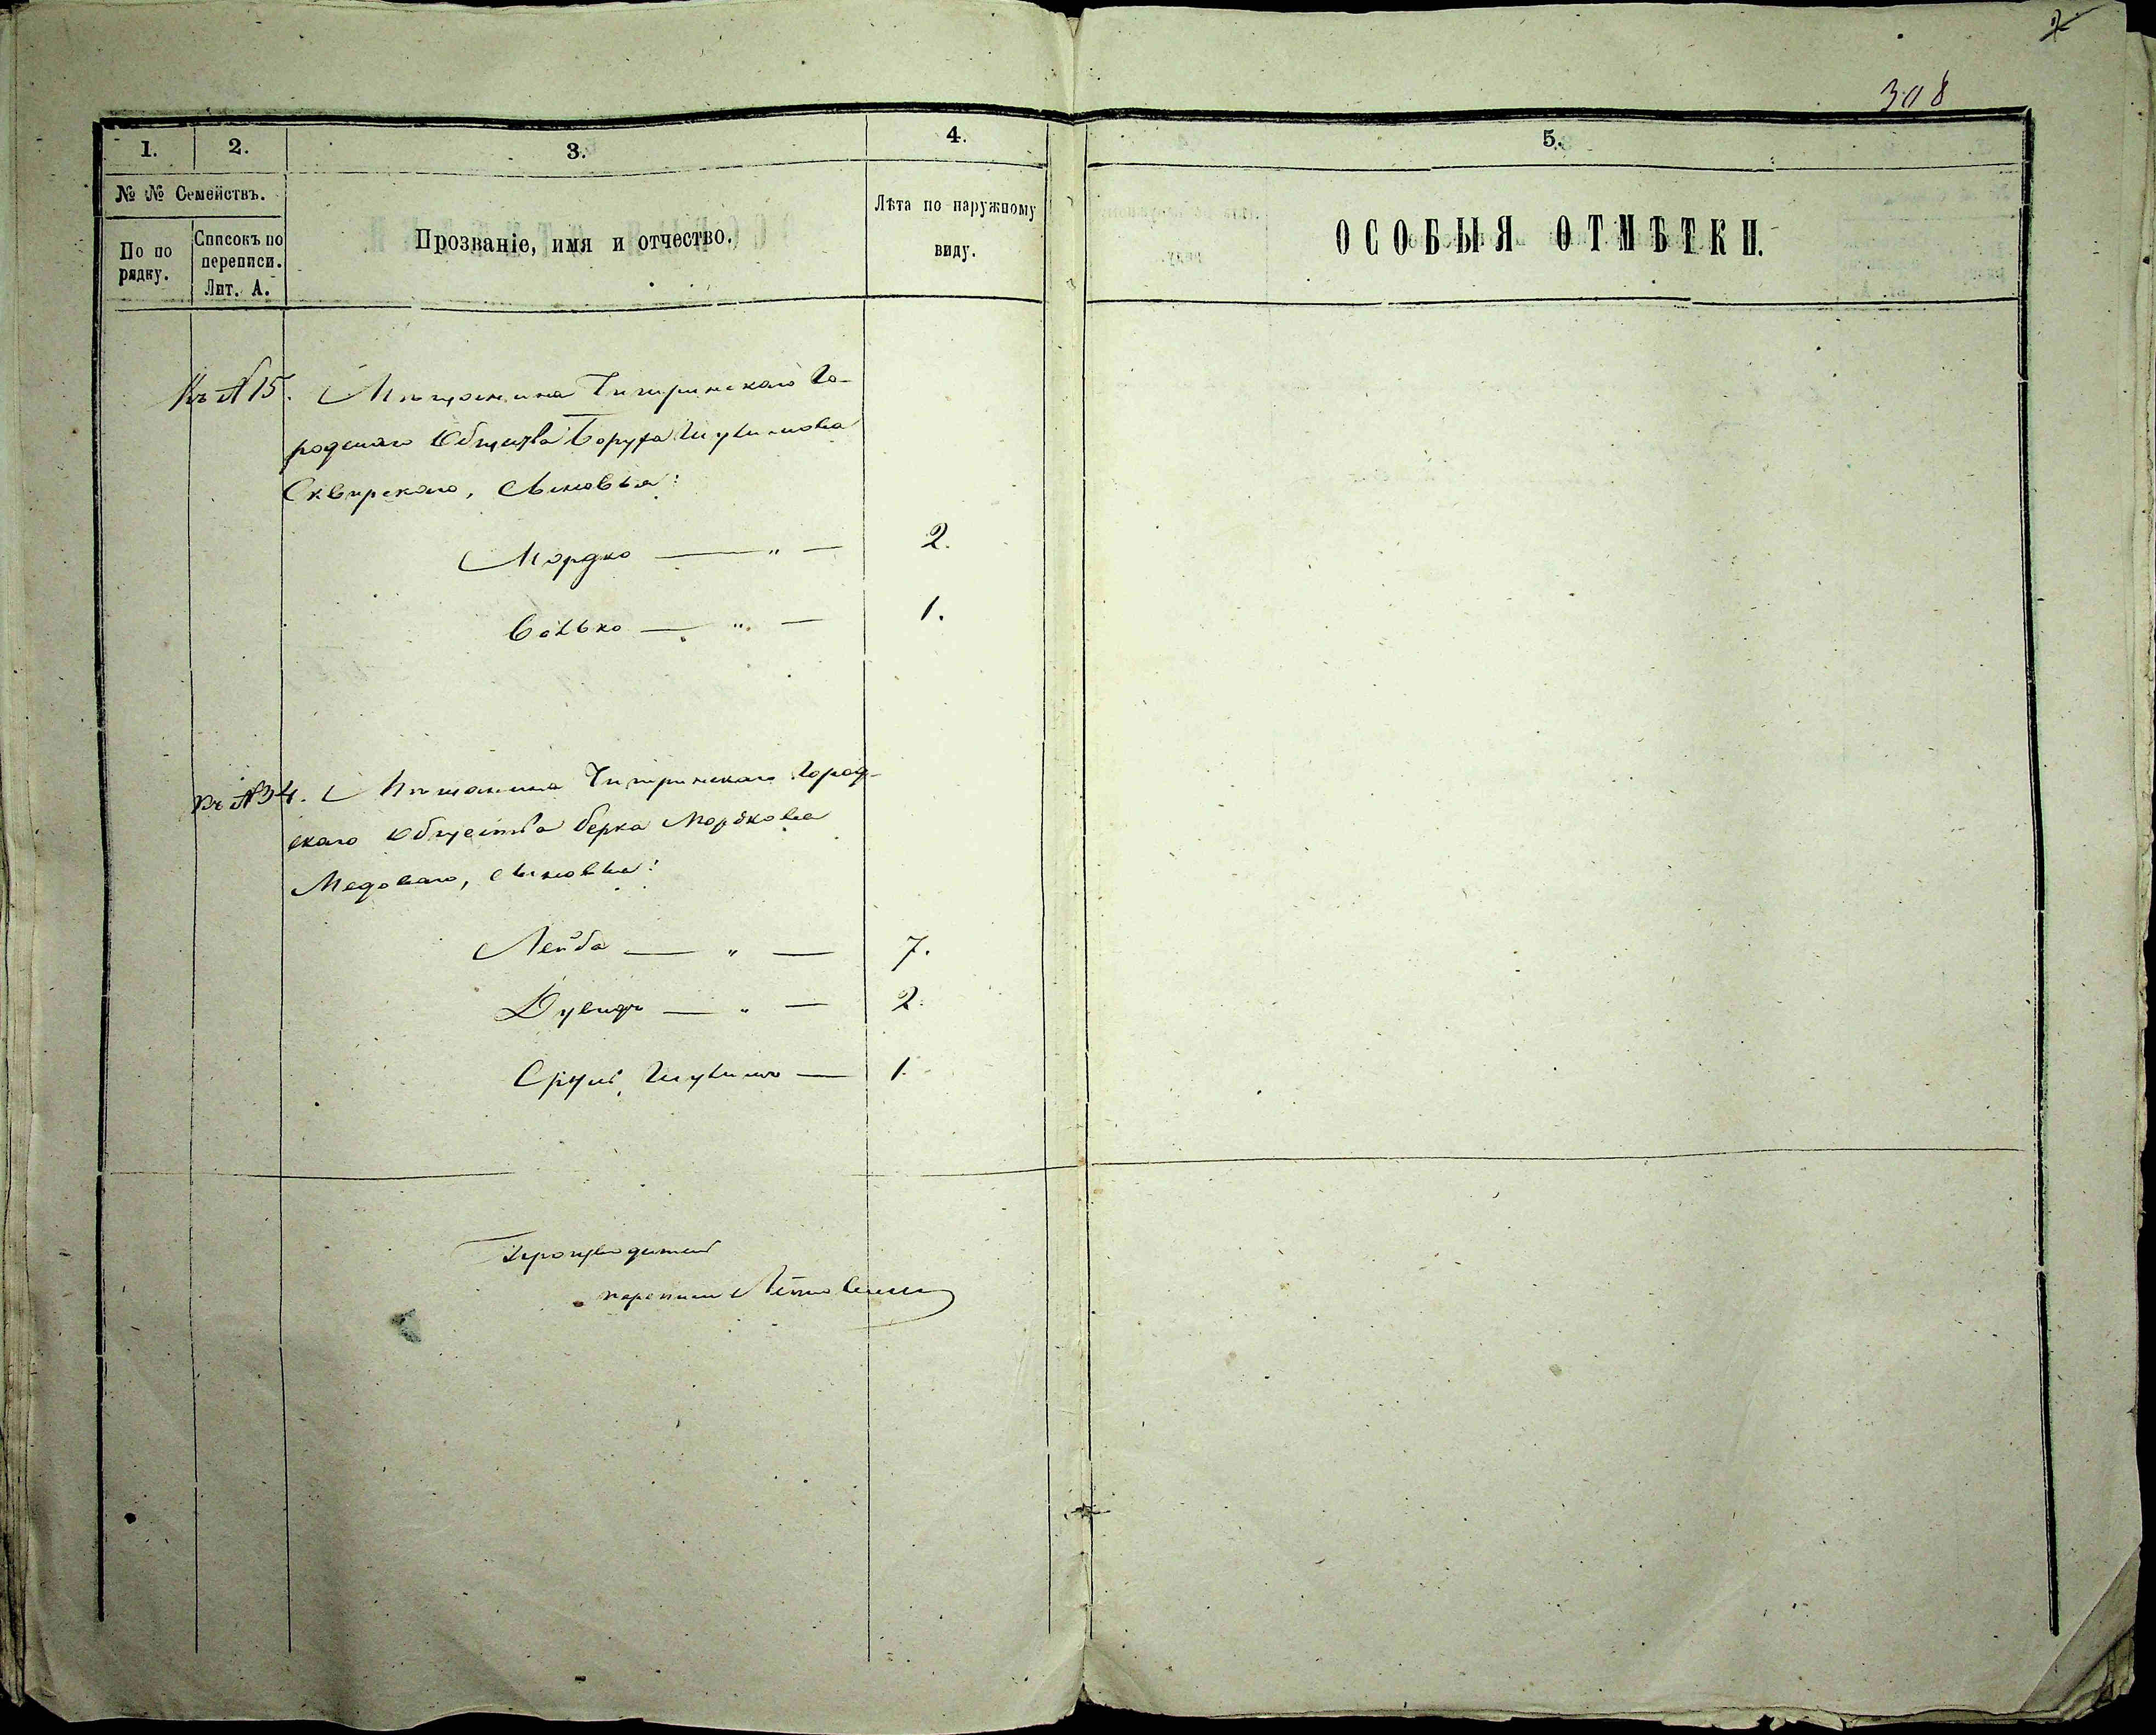 308
1.
2.
3.
4.
5.
№ № Семействъ.
По по
рядку.
Списокъ по
переписи.
Лит. А.
Прозваніе, имя и отчество.
Лѣта по наружному
виду.
ОСОБЫЯ ОТМѢТКИ.
Къ №15. Мѣщанина Чигиринскаго Го-
родскаго Общества Боруха
Сквирскаго, сыновья:
Мордко — " — 2.
— " — 1.
Къ №34. Мѣщанина Чигиринскаго Город-
скаго Общества Берка Мордкова
Медоваго, сыновья:
Лейба — " — 7.
Дувидъ — " — 2.
Сруль — 1.
Производитель
переписи